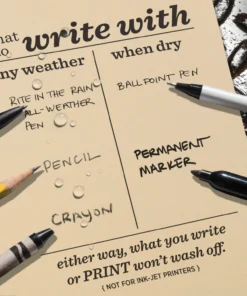 what
to write with
any weather
when dry
RITE IN THE RAIN
ALL-WEATHER
PEN
BALLPOINT PEN
PENCIL
PERMANENT
MARKER
CRAYON
either way, what you write
or PRINT won't wash off.
( NOT FOR INK-JET PRINTERS )